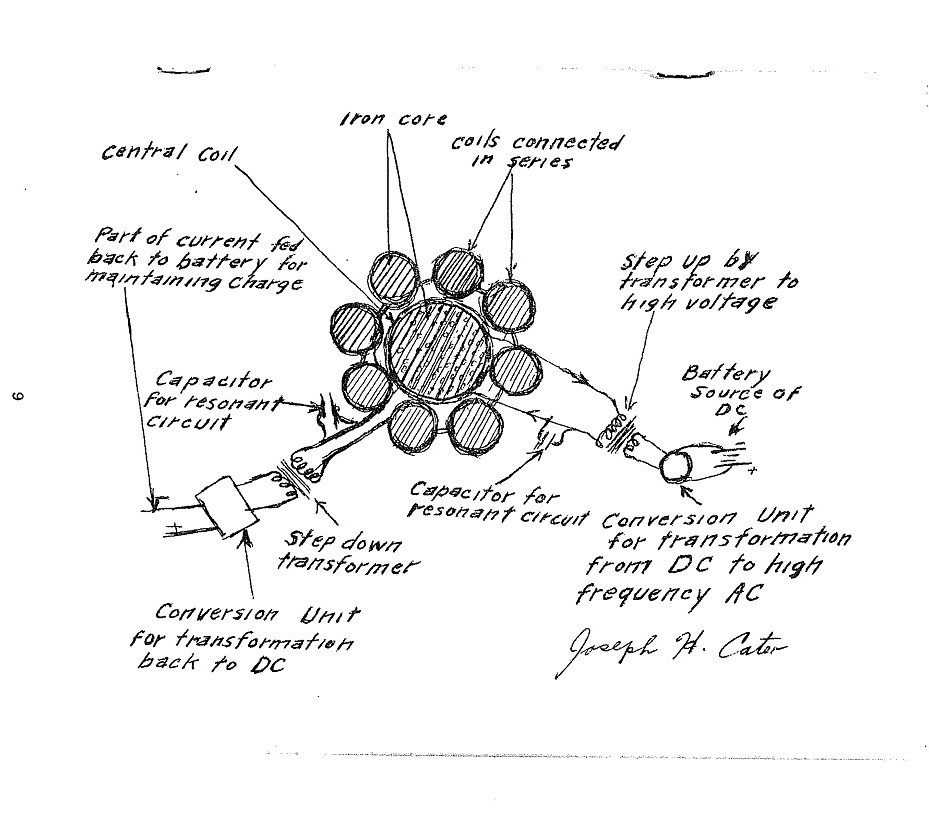 Iron core
coils connected
in series
Central Coil
Part of current fed
back to battery for
maintaining charge
Step up by
transformer to
high voltage
Battery
Source of
DC
Capacitor
for resonant
circuit
+
Capacitor for
resonant circuit
Step down
transformer
+
Conversion Unit
for transformation
from DC to high
frequency AC
Conversion Unit
for transformation
back to DC
Joseph H. Cater
9